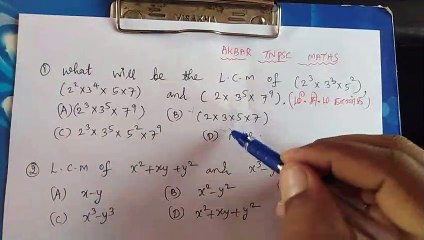 VISAKHA
AKBAR TNPSC MATHS
① What will be the L.C.M of (2³×3³×5²),
(2²×3⁴×5×7) and (2×3⁵×7⁹).
(A) (2³×3⁵×7⁹) (B) (2×3×5×7)
(C) 2³×3⁵×5²×7⁹ (D)
② L.C.M of x²+xy+y² and x³-y
(A) x-y (B) x²-y²
(C) x³-y³ (D) x²+xy+y²